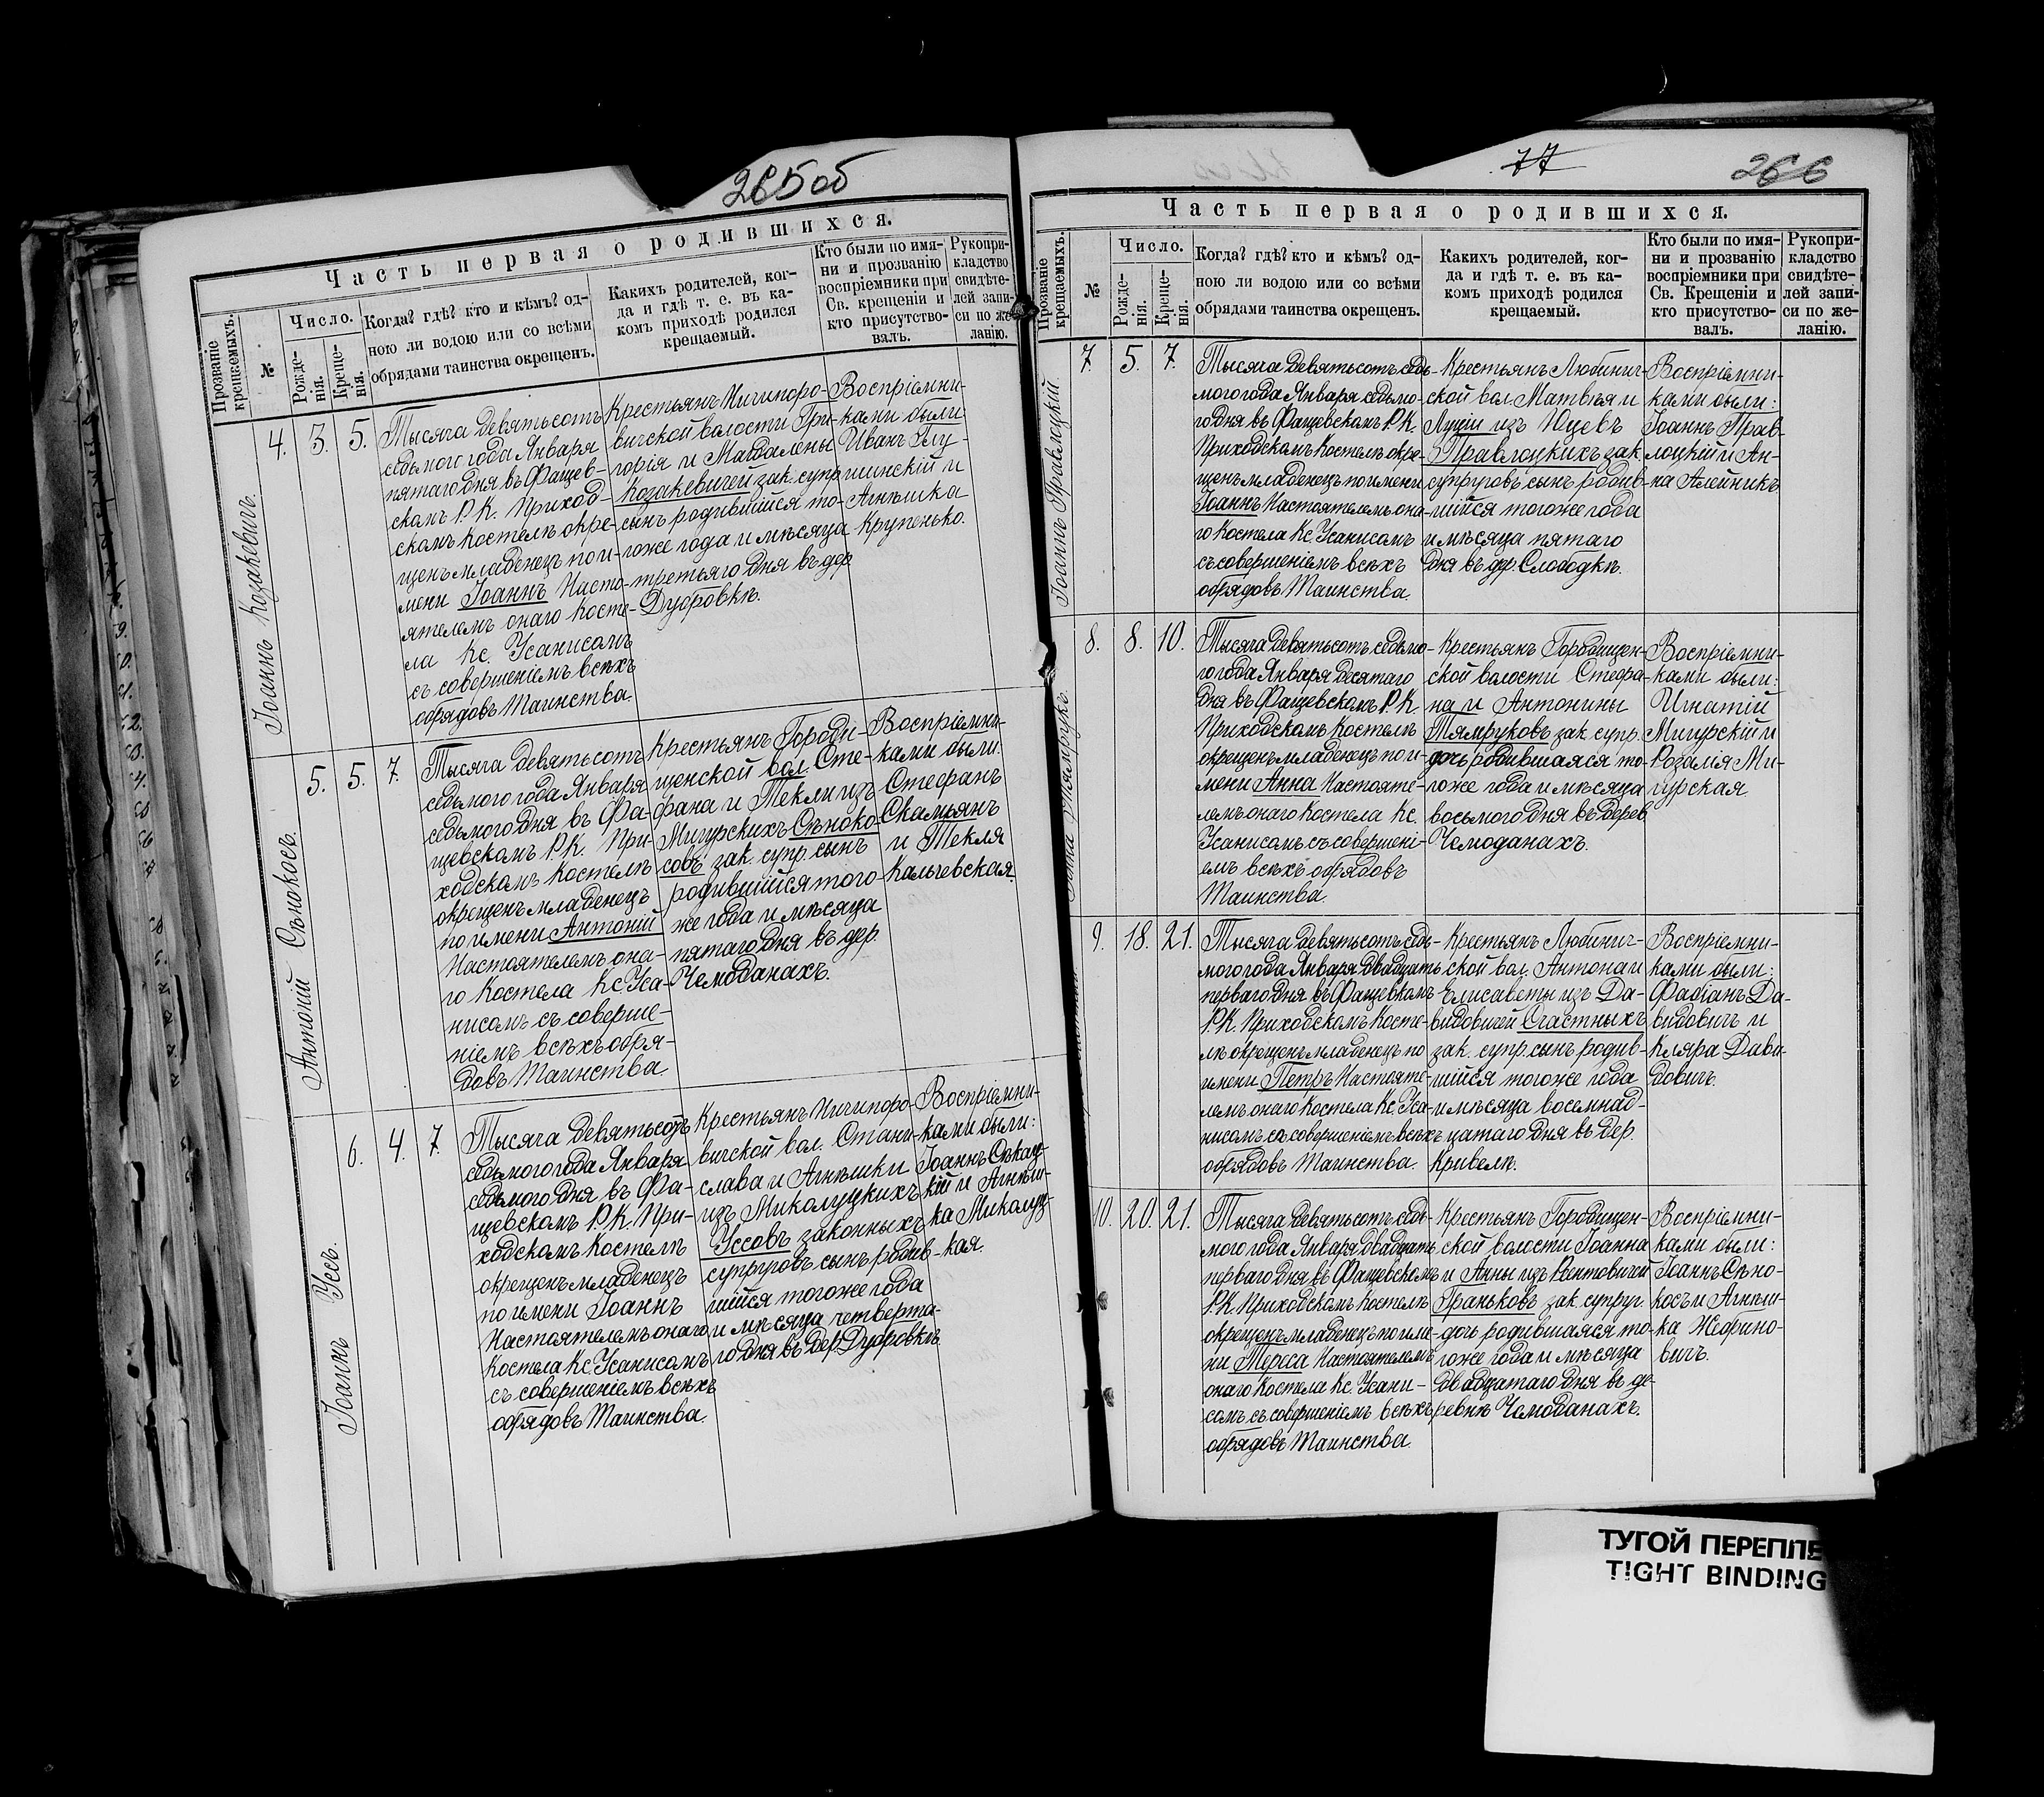 265 об
Часть первая о родившихся.
Прозваніе крещаемыхъ.
№
Число.
Рожде-
нія.
Креще-
нія.
Когда? гдѣ? кто и кѣмъ? од-
ною ли водою или со всѣми
обрядами таинства окрещенъ.
Какихъ родителей, ког-
да и гдѣ т. е. въ ка-
комъ приходѣ родился
крещаемый.
Кто были по имя-
ни и прозванію
воспріемники при
Св. крещеніи и
кто присутство-
валъ.
Рукопри-
кладство
свидѣте-
лей запи-
си по же-
ланію.
Іоаннъ Козакевичъ.
4. 3. 5.
Тысяча девятьсотъ
седьмого года Января
пятаго дня въ Фащев-
скомъ Р. К. Приход-
скомъ костелѣ окре-
щенъ младенецъ по и-
мени Іоаннъ Насто-
ятелемъ онаго косте-
ла Кс. Усанисомъ
съ совершеніемъ всѣхъ
обрядовъ Таинства.
Крестьянъ Ничипоро-
вичской волости Гри-
горія и Магдалены
Козакевичей зак. супр
сынъ родившійся то-
гоже года и мѣсяца
третьяго дня въ дер
Дубровкѣ.
Воспріемни-
ками были
Иванъ Глу-
шинскій и
Агнѣшка
Крупенько.
Антоній Сѣнокосъ.
5. 5. 7.
Тысяча девятьсотъ
седьмого года Января
седьмого дня въ Фа-
щевскомъ Р. К. При-
ходскомъ костелѣ
окрещенъ младенецъ
по имени Антоній
Настоятелемъ она-
го Костела Кс. Уса-
нисомъ съ соверше-
ніемъ всѣхъ обря-
довъ Таинства
Крестьянъ Городи-
щенской вол. Сте-
фана и Текли изъ
Мигурскихъ Сѣноко-
совъ зак. супр. сынъ
родившійся того
же года и мѣсяца
пятаго дня въ дер.
Чемоданахъ.
Воспріемни-
ками были:
Стефанъ
Скамьянъ
и Текля
Кальчевская.
Іоаннъ Уссъ.
6. 4. 7.
Тысяча девятьсотъ
седьмого года Января
седьмого дня въ Фа-
щевскомъ Р. К. При-
ходскомъ Костелѣ
окрещенъ младенецъ
по имени Іоаннъ
Настоятелемъ онаго
Костела Кс. Усанисомъ
съ совершеніемъ всѣхъ
обрядовъ Таинства.
Крестьянъ Ничипоро-
вичской вол. Стани-
слава и Агнѣшки
изъ Миколуцкихъ
Уссовъ законныхъ
супруговъ сынъ родив-
шійся тогоже года
и мѣсяца четверта-
го дня въ дер Дубровкѣ.
Воспріемни-
ками были:
Іоаннъ Сѣкац-
кій и Агнѣш-
ка Миколуц-
кая.
77
266
Часть первая о родившихся.
Прозваніе крещаемыхъ.
№
Число.
Рожде-
нія.
Креще-
нія.
Когда? гдѣ? кто и кѣмъ? од-
ною ли водою или со всѣми
обрядами таинства окрещенъ.
Какихъ родителей, ког-
да и гдѣ т. е. въ ка-
комъ приходѣ родился
крещаемый.
Кто были по имя-
ни и прозванію
воспріемники при
Св. Крещеніи и
кто присутство-
валъ.
Рукопри-
кладство
свидѣте-
лей запи-
си по же-
ланію.
Іоаннъ Правлоцкій.
7. 5. 7.
Тысяча девятьсотъ седь-
мого года Января седьмо-
го дня въ Фащевскомъ Р. К.
Приходскомъ Костелѣ окре-
щенъ младенецъ по имени
Іоаннъ Настоятелемъ она-
го Костела Кс Усанисомъ
съ совершеніемъ всѣхъ
обрядовъ Таинства.
Крестьянъ Любинич-
ской вол. Матвѣя и
Луціи изъ Юцевъ
Правлоцкихъ зак
супруговъ сынъ родив-
шійся тогоже года
и мѣсяца пятаго
дня въ др. Слободкѣ.
Воспріемни-
ками были:
Іоаннъ Прав-
лоцкій и Ан-
на Алейникъ.
8. 8. 10.
Тысяча девятьсотъ седьмо-
го года Января десятаго
дня въ Фащевскомъ Р. К.
Приходскомъ Костелѣ
окрещенъ младенецъ по и-
мени Анна Настояте-
лемъ онаго Костела Кс.
Усанисомъ съ совершені-
емъ всѣхъ обрядовъ
Таинства.
Крестьянъ Городищен-
ской волости Стефа-
на и Антонины
Тямруковъ зак. супр.
дочь родившаяся то-
гоже года и мѣсяца
восьмого дня въ дерев
Чемоданахъ.
Воспріемни-
ками были:
Игнатій
Мигурскій и
Розалія Ми-
гурская
9. 18. 21.
Тысяча девятьсотъ седь-
мого года Января двадцать
перваго дня въ Фащевскомъ
Р. К. Приходскомъ Косте-
лѣ окрещенъ младенецъ по
имени Петръ Настояте-
лемъ онаго Костела Кс. Уса-
нисомъ съ совершеніемъ всѣхъ
обрядовъ Таинства.
Крестьянъ Любинич-
ской вол. Антона и
Елисаветы изъ Да-
видовичей Счастныхъ
зак. супр. сынъ родив-
шійся тогоже года
и мѣсяца восемнад-
цатаго дня въ дер.
Кривелѣ.
Воспріемни-
ками были:
Фабіанъ Да-
видовичъ и
Кляра Дави-
довичъ.
10. 20. 21.
Тысяча девятьсотъ седь-
мого года Января двадцать
перваго дня въ Фащевскомъ
Р. К. Приходскомъ Костелѣ
окрещенъ младенецъ по име-
ни Тереса Настоятелемъ
онаго Костела Кс. Усани-
сомъ съ совершеніемъ всѣхъ
обрядовъ Таинства.
Крестьянъ Городищен-
ской волости Іоанна
и Анны изъ Рентовичей
Граньковъ зак. супруг.
дочь родившаяся то-
гоже года и мѣсяца
двадцатаго дня въ де-
ревнѣ Чемоданахъ.
Воспріемни-
ками были:
Іоаннъ Сѣно-
косъ и Агнѣш-
ка Жефино-
вичъ.
ТУГОЙ ПЕРЕПЛЕ
TIGHT BINDING